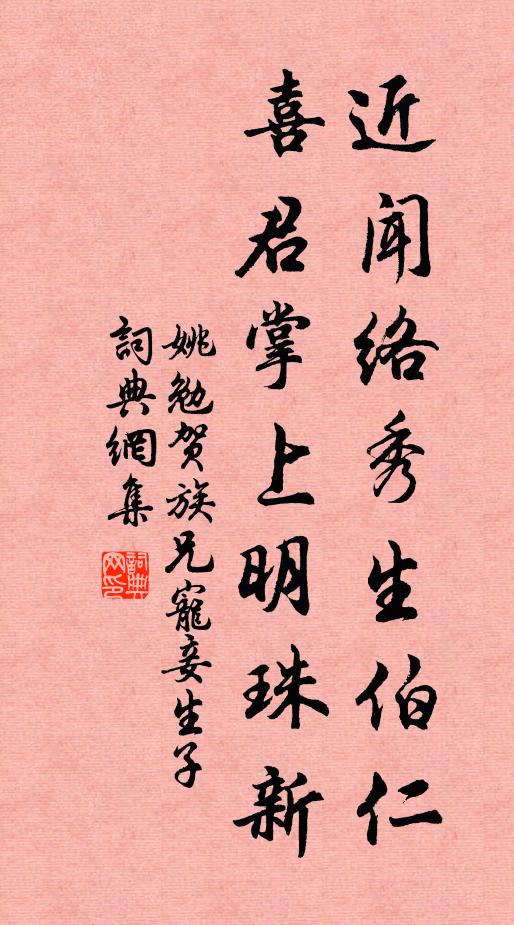 近聞絡秀生伯仁
喜君掌上明珠新
姚勉賀族兄寵妾生子
詞典網集
詞典网印